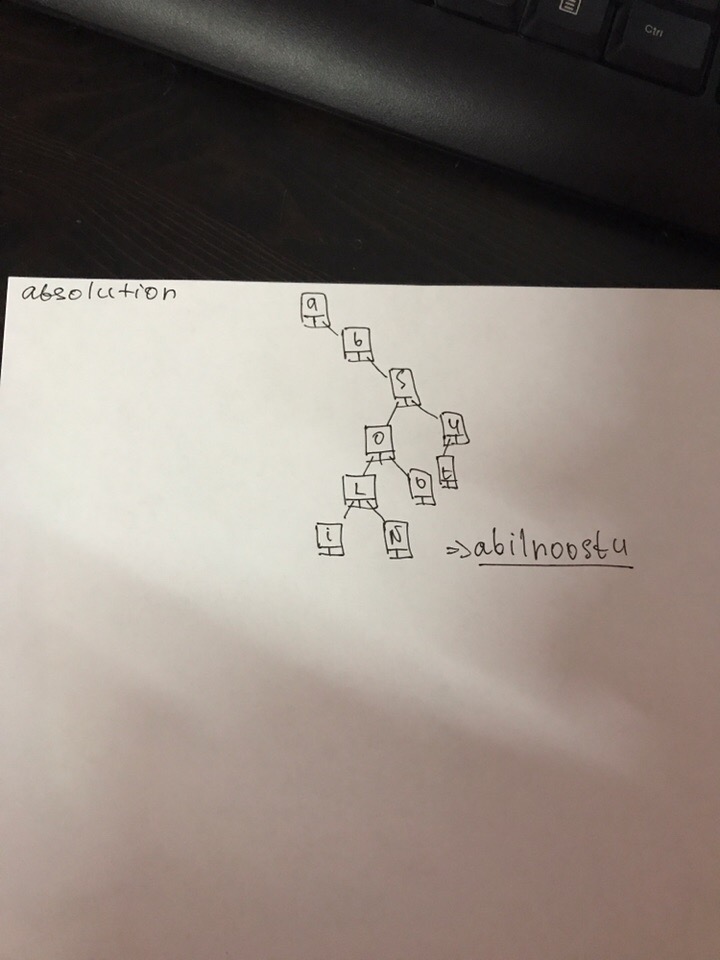 Ctrl
absolution
a
b
S
O
u
L
O
t
i
N
=> abilnoostu